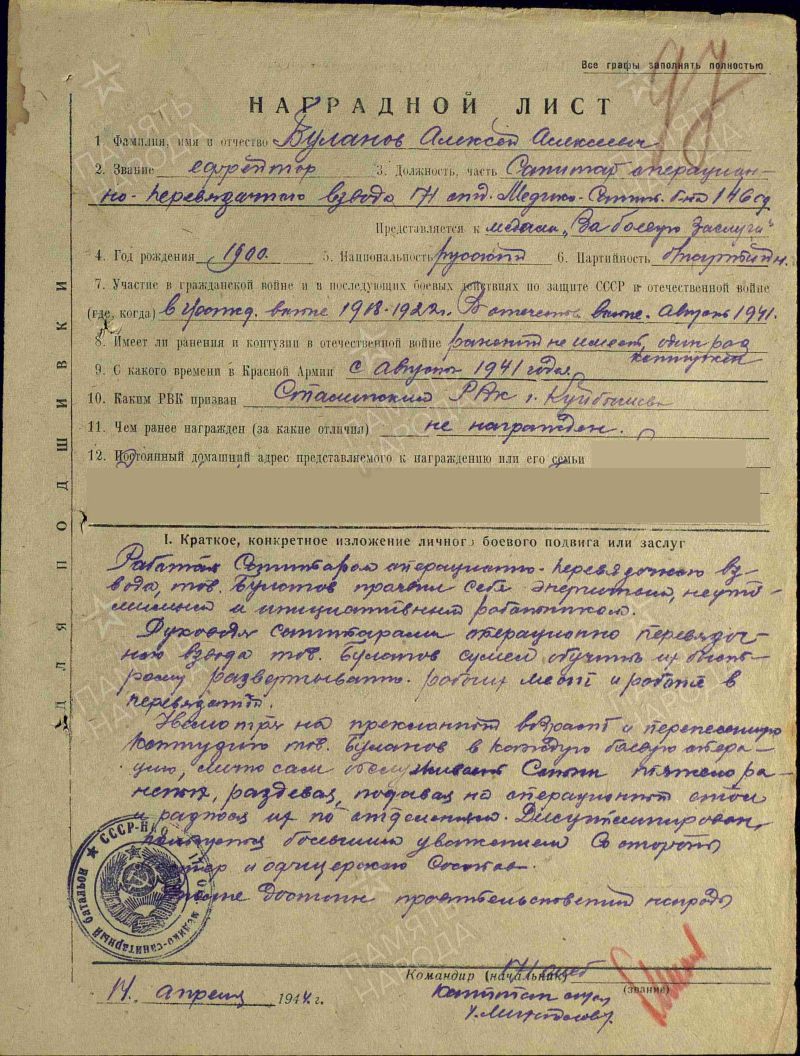 Все графы заполнять полностью
97
НАГРАДНОЙ ЛИСТ
1. Фамилия, имя и отчество Буланов Алексей Алексеевич
2. Звание ефрейтор 3. Должность, часть Санитар операцион-
но-перевязочного взвода 171 отд. Медико-Санит. б-на 146 сд
Представляется к медали „За боевые заслуги"
4. Год рождения 1900. 5. Национальность русский 6. Партийность б/партийн.
7. Участие в гражданской войне и в последующих боевых действиях по защите СССР и отечественной войне
(где, когда) в гражд. войне 1918-1922г. В отечеств. войне. август 1941.
8. Имеет ли ранения и контузии в отечественной войне ранений не имеет, один раз
контужен
9. С какого времени в Красной Армии с августа 1941 года
10. Каким РВК призван Сталинским РВК г. Куйбышева
11. Чем ранее награжден (за какие отличия) не награжден.
12. Постоянный домашний адрес представляемого к награждению или его семьи
ДЛЯ ПОДШИВКИ
I. Краткое, конкретное изложение личного боевого подвига или заслуг
Работая Санитаром операционно-перевязочного вз-
вода, тов. Буланов проявил себя энергичным, неуто-
мимым и инициативным работником.
Руководя санитарами операционно перевязоч-
ного взвода тов. Буланов сумел обучить их быст-
рому развертыванию рабочих мест и работе в
перевязочной.
Несмотря на преклонный возраст и перенесенную
контузию тов. Буланов в каждую боевую опера-
цию, лично сам обслуживает Сотни тяжело ра-
неных, раздевая, подавая на операционный стол
и разнося их по отделениям. Дисциплинирован,
пользуется большим уважением со стороны
и офицерского Состава.
Вполне Достоин правительственной награды
СССР-НКО 171 ОТД. медико-санитарный батальон
Командир (начальник) 171 омсб
(звание)
капитан м/сл
14. апреля 1944 г.
ПАМЯТЬ НАРОДА